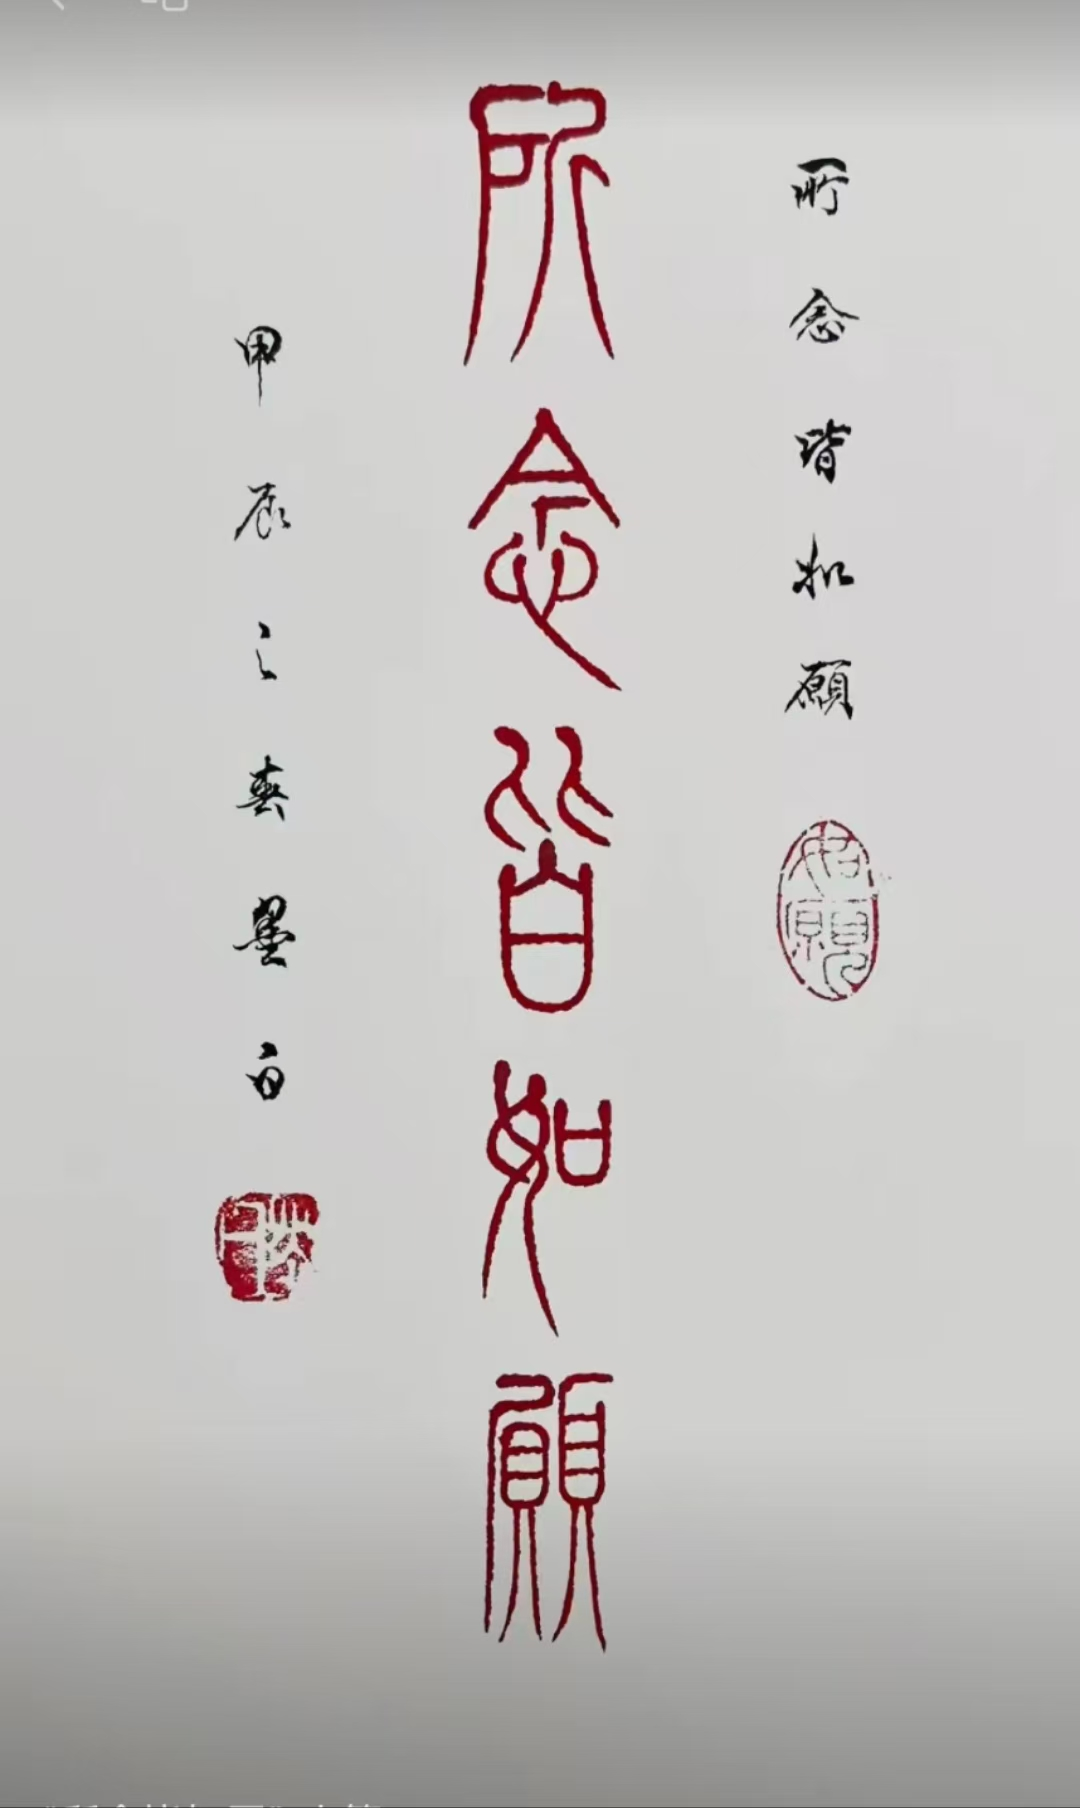 所念皆如願
如願
所念皆如願
甲辰之春墨白